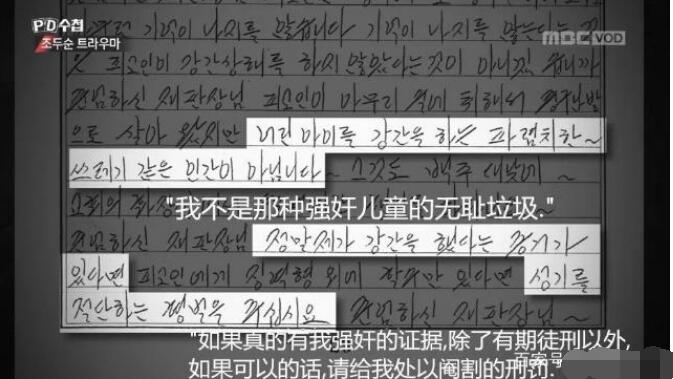 PD수첩
조두순 트라우마
MBC VOD
기억이 나지를 않습니다 기억이 나지를 않는다는 것
은 피고인이 강간상해를 하지 않았다는것이 아니겠습니까
재판장님 피고인이 아무리 술에 취해서
으로 살아 왔지만 어린 아이를 강간을 하는 파렴치한~
쓰레기 같은 인간이 아닙니다~ 그것도 백주 대낮에~
"我不是那种强奸儿童的无耻垃圾."
재판장님 정말제가 강간을 했다는 증거가
있다면 피고인에게 징역형 외에 할수만 있다면 성기를
절단하는 형벌을 주십시요 재판장님~
"如果真的有我强奸的证据,除了有期徒刑以外,
如果可以的话,请给我处以阉割的刑罚."
百家号